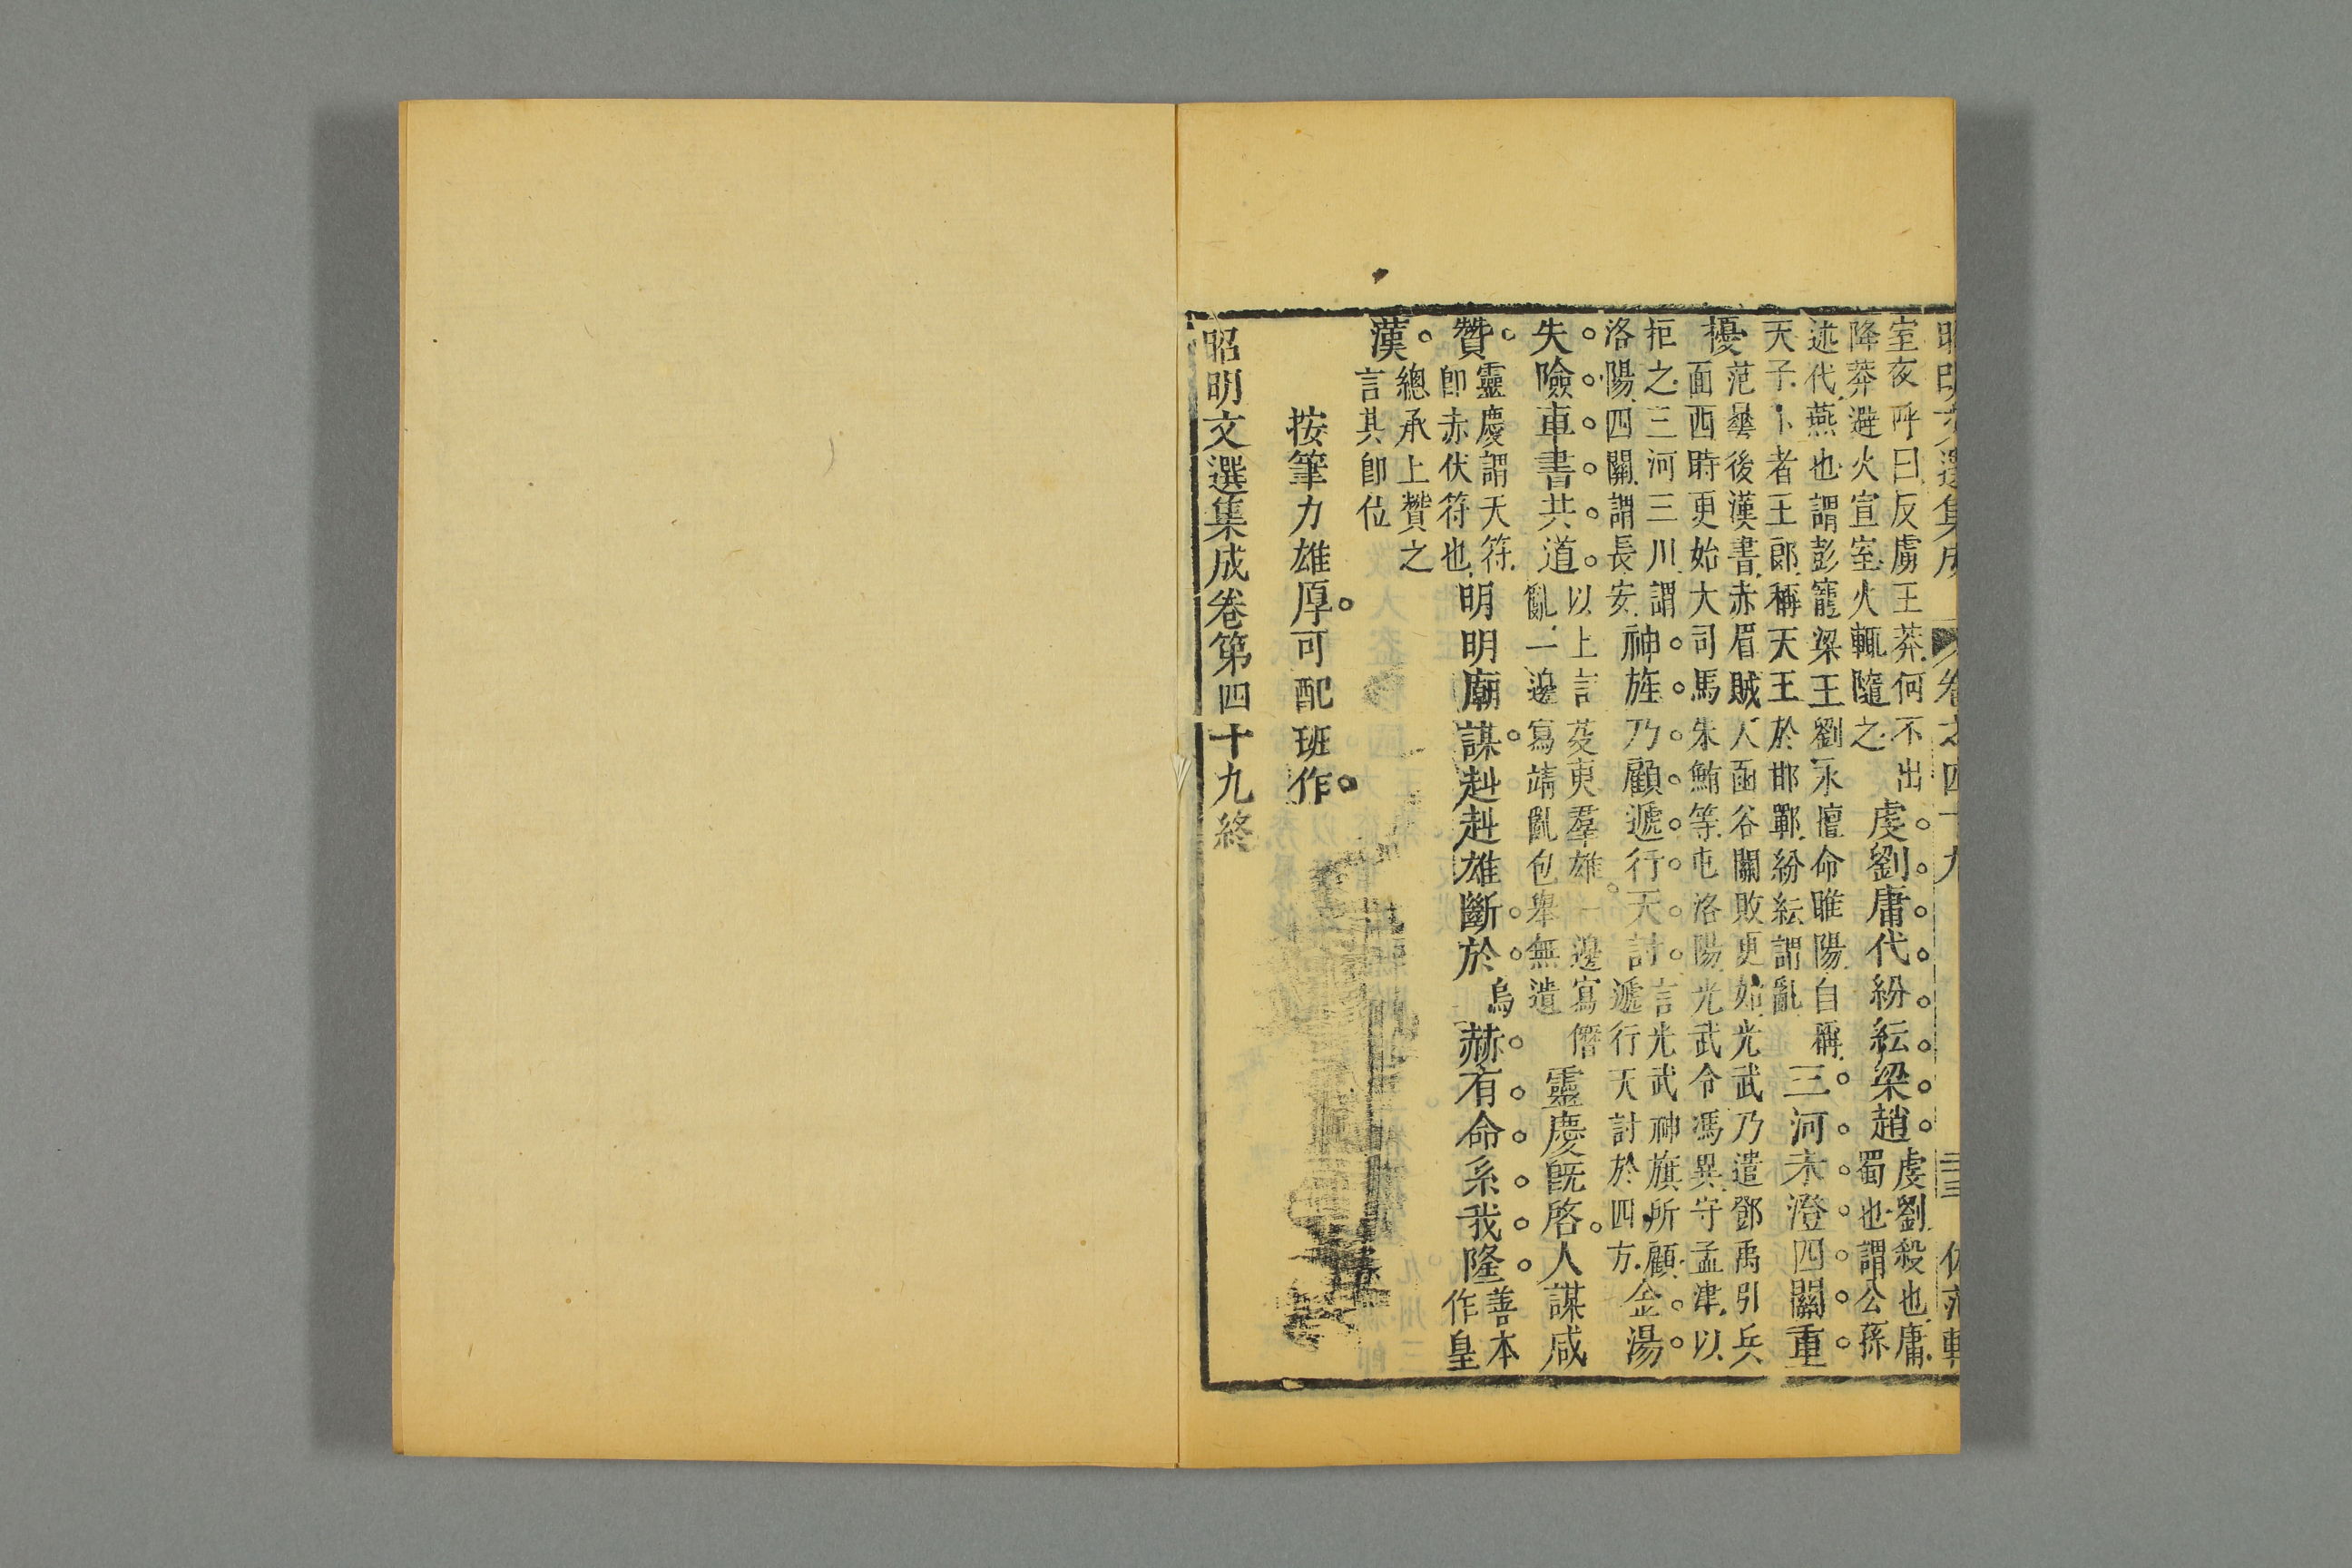 昭明文選集成 卷之四十九 三三
室夜呼曰反虜王莽何不出降莽避火宣室火輒隨之虔劉庸代紛紜梁趙。虔劉殺也庸蜀也謂公孫
述代燕也謂彭寵梁王劉永擅命睢陽自稱天子卜者王郎稱天王於邯鄲紛紜謂亂三河未澄四關重
擾范曄後漢書赤眉賊入函谷關敗更始光武乃遣鄧禹引兵面西時更始大司馬朱鮪等屯洛陽光武令馮異守孟津以
拒之三河三川謂洛陽四關謂長安神旌乃顧遞行天討。言光武神旗所顧遞行天討於四方金湯
失險車書共道。以上言芟夷羣雄一邊寫僭亂一邊寫靖亂包舉無遺靈慶旣啓。人謀咸
贊。靈慶謂天符卽赤伏符也明明廟謀。赳赳雄斷。於烏赫有命。系我隆善本作皇
漢。總承上贊之言其卽位
按筆力雄厚。可配班作。
昭明文選集成卷第四十九終